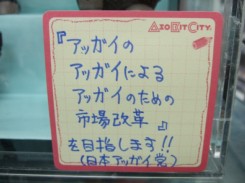 AIOBITCITY.
『アッガイの
アッガイによる
アッガイのための
市場改革』
を目指します!!
(日本アッガイ党)